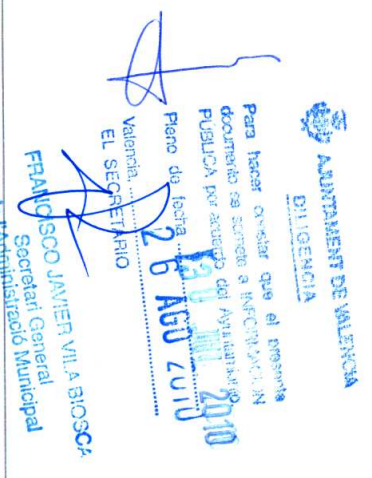 AJUNTAMENT DE VALENCIA
DILIGENCIA
Para hacer constar que el presente
documento se somete a INFORMACIÓN
PUBLICA por acuerdo del Ayuntamiento
Pleno de fecha 2010
Valencia, 26 AGO 2010
EL SECRETARIO
FRANCISCO JAVIER VILA BIOSCA
Secretari General
de l'Administració Municipal